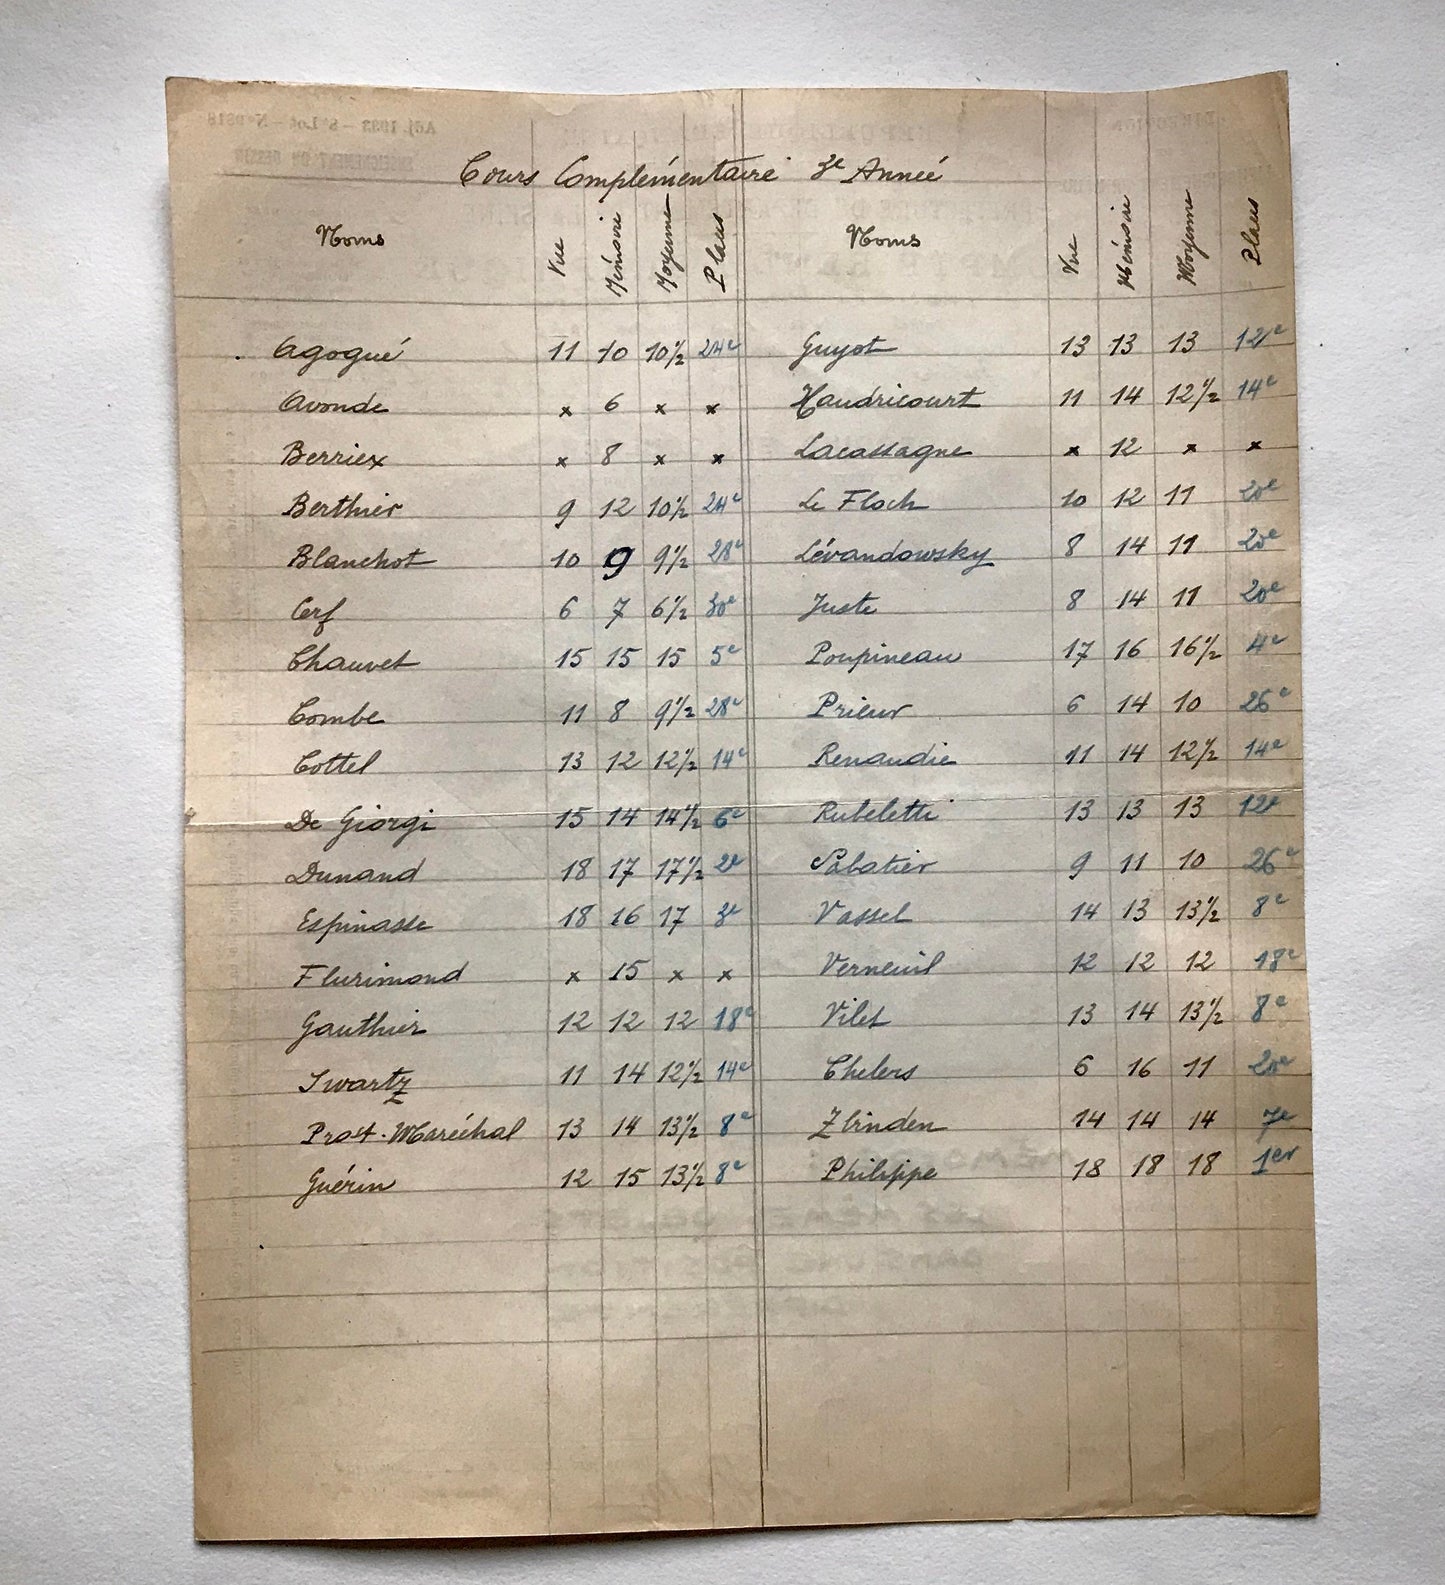 Cours Complémentaire 3e Année
Noms Vue Mémoire Moyenne Places Noms Vue Mémoire Moyenne Places
Agogué 11 10 10 1/2 24e Guyot 13 13 13 12e
Avonde x 6 x x Haudricourt 11 14 12 1/2 14e
Berriex x 8 x x Lacassagne x 12 x x
Berthier 9 12 10 1/2 24e Le Floch 10 12 11 20e
Blanchot 10 9 9 1/2 28e Lévandowsky 8 14 11 20e
Cerf 6 7 6 1/2 30e Juste 8 14 11 20e
Chauvet 15 15 15 5e Poupineau 17 16 16 1/2 4e
Combe 11 8 9 1/2 28e Prieur 6 14 10 26e
Cottel 13 12 12 1/2 14e Renaudie 11 14 12 1/2 14e
De Giorgi 15 14 14 1/2 6e Rubeletti 13 13 13 12e
Dunand 18 17 17 1/2 2e Sabatier 9 11 10 26e
Espinasse 18 16 17 3e Vassel 14 13 13 1/2 8e
Flurimond x 15 x x Verneuil 12 12 12 18e
Gauthier 12 12 12 18e Vilet 13 14 13 1/2 8e
Swartz 11 14 12 1/2 14e Chelers 6 16 11 20e
Prost-Maréchal 13 14 13 1/2 8e Zbinden 14 14 14 7e
Guérin 12 15 13 1/2 8e Philippe 18 18 18 1er